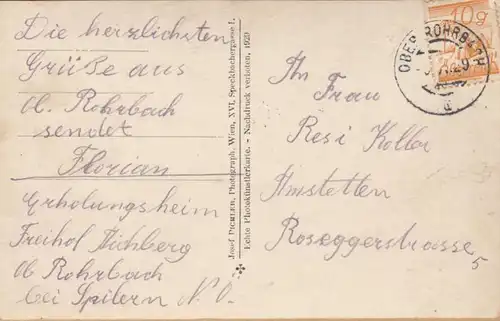 Die herzlichsten
Grüße aus
Ob. Rohrbach
sendet
Florian
Erholungsheim
Freihof Aichberg
Ob Rohrbach
bei Spilern N. Ö.
Josef PICHLER, Photograph, Wien, XVI, Speckbachergasse 1.
Echte Photokünstlerkarte. - Nachdruck verboten, 1929
10g
OBER ROHRBACH
29
a
An Frau
Resi Kolla
Amstetten
Roseggerstrasse 5